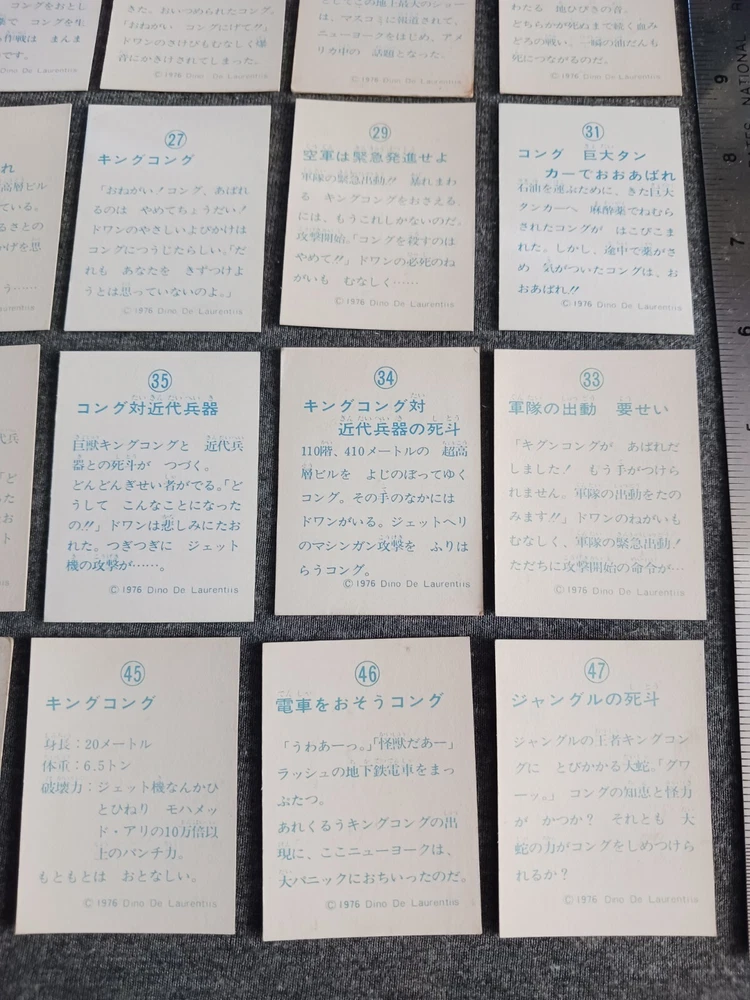 コングをおとし
で コングを生
作戦は まんま
です。
Dino De Laurentiis
きた、おいつめられたコング。
「おねがい! コング、にげて!!」
ドワンのさけびもむなしく爆
音にかきけされてしまった。
©1976 Dino De Laurentiis
としてこの地上最大のショー
は、マスコミに報道されて、
ニューヨークをはじめ、アメ
リカ中の 話題となった。
©1976 Dino De Laurentiis
わたる 地ひびきの音。
どちらかが死ぬまで続く血み
どろの戦い、一瞬の油だんも
死につながるものだ。
©1976 Dino De Laurentiis
れ
高層ビル
ている。
るさとの
かげを思
う……
Laurentiis
27
キングコング
「おねがい!コング、あばれ
るのは やめてちょうだい!
ドワンのやさしいよびかけは
コングにつうじたらしい。「だ
れも あなたを きずつけよ
うとは思っていないのよ。」
©1976 Dino De Laurentiis
29
空軍は緊急発進せよ
軍隊の緊急出動!! 暴れまわ
る キングコングをおさえる
には、もうこれしかないのだ。
攻撃開始。「コングを殺すのは
やめて!!」ドワンの必死のね
がいも むなしく……
©1976 Dino De Laurentiis
31
コング 巨大タン
カーでおおあばれ
石油を運ぶために、きた巨大
タンカーへ 麻酔薬でねむら
されたコングが はこびこま
れた。しかし、途中で薬がさ
め 気がついたコングは、お
おあばれ!!
©1976 Dino De Laurentiis
35
コング対近代兵器
巨獣キングコングと 近代兵
器との死斗が つづく。
どんどんぎせい者がでる。「ど
うして こんなことになった
の!!」ドワンは悲しみにたお
れた。つぎつぎに ジェット
機の攻撃が……。
©1976 Dino De Laurentiis
34
キングコング対
近代兵器の死斗
110階、410メートルの 超高
層ビルを よじのぼってゆく
コング。その手のなかには
ドワンがいる。ジェットヘリ
のマシンガン攻撃を ふりは
らうコング。
©1976 Dino De Laurentiis
33
軍隊の出動 要せい
「キグンコングが あばれだ
しました! もう手がつけら
れません。軍隊の出動をたの
みます!!」ドワンのねがいも
むなしく、軍隊の緊急出動!
ただちに攻撃開始の命令が…
©1976 Dino De Laurentiis
45
キングコング
身長:20メートル
体重:6.5トン
破壊力:ジェット機なんかひ
とひねり モハメッ
ド・アリの10万倍以
上のパンチ力。
もともとは おとなしい。
©1976 Dino De Laurentiis
46
電車をおそうコング
「うわあーっ。」「怪獣だあー」
ラッシュの地下鉄電車をまっ
ぷたつ。
あれくるうキングコングの出
現に、ここニューヨークは、
大パニックにおちいったのだ。
©1976 Dino De Laurentiis
47
ジャングルの死斗
ジャングルの王者キングコン
グに とびかかる大蛇。「グワ
ーッ。」 コングの知恵と怪力
が かつか? それとも 大
蛇の力がコングをしめつけら
れるか?
©1976 Dino De Laurentiis
9
8
7
6
NATIONAL